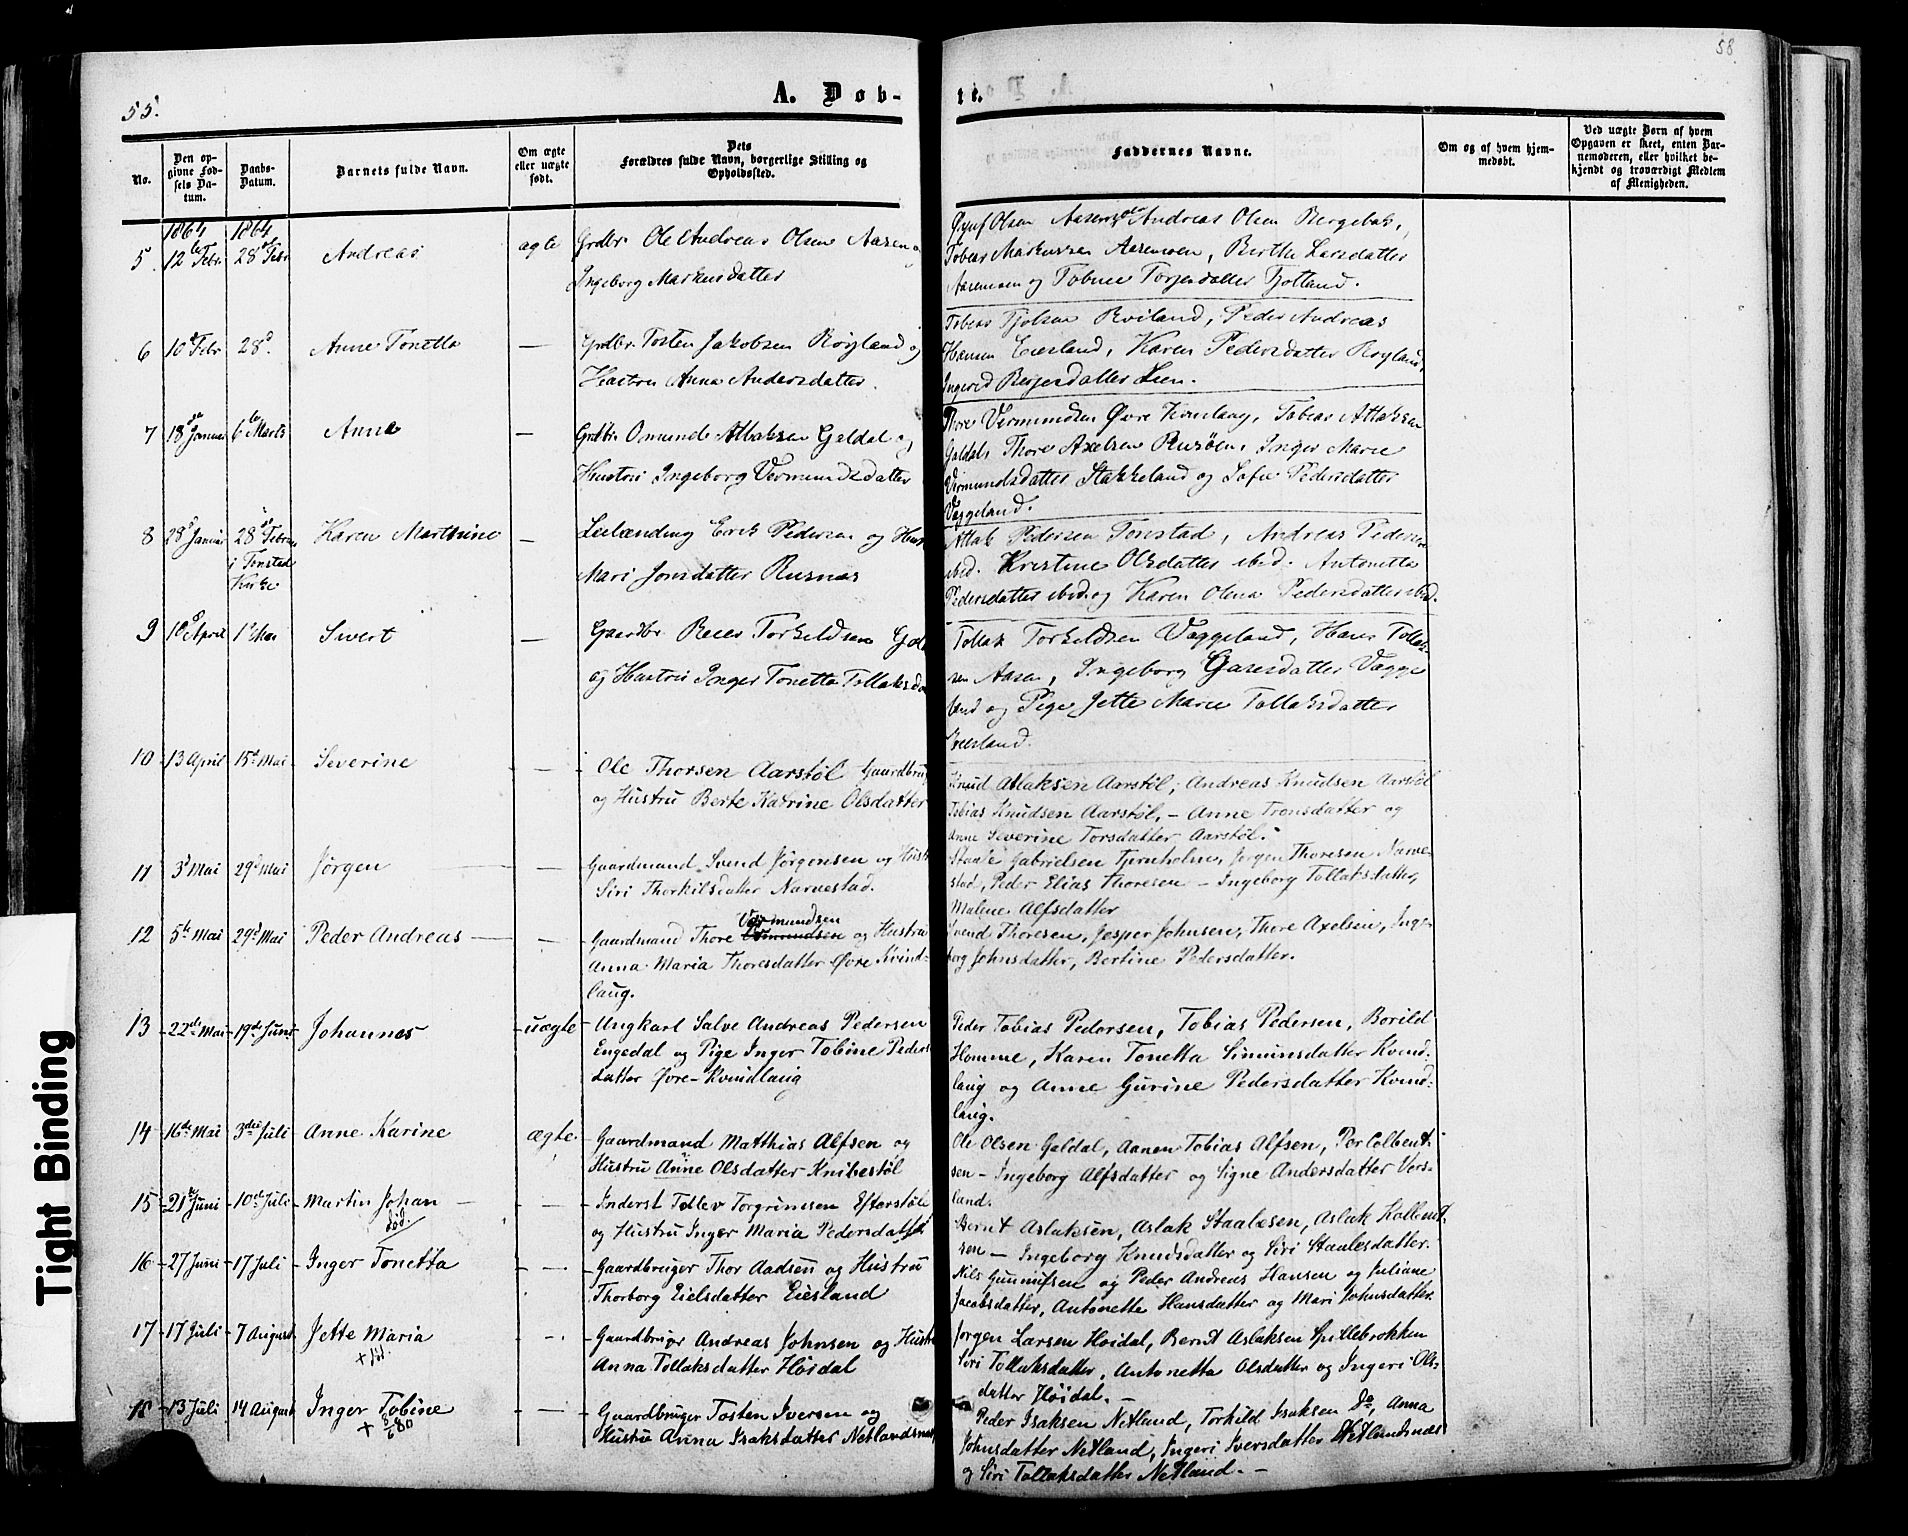 55.
A. Døb-
te.
58
No.
Den op-
givne Fød-
sels Da-
tum.
Daabs-
Datum.
Barnets fulde Navn.
Om ægte
eller uægte
født.
Dets
Forældres fulde Navn, borgerlige Stilling og
Opholdssted.
Faddernes Navne.
Om og af hvem hjem-
medøbt.
Ved uægte Børn af hvem
Opgaven er skeet, enten Bar-
nemoderen, eller hvilket be-
kjendt og troværdigt Medlem
af Menigheden.
1864 1864
5. 12te Febr 28de Febr Andreas ægte Grdbr Ole Andreas Olsen Aasen og
Ingeborg Markusdatter
Olsen Andreas Olsen
Tobias Markussen Aasenmoen, Berthe Larsdatter
Aasenmoen og Tobine Torjersdatter Tjotland.
6 10de Febr 28d. Anne Tonetta — Grdbr Tosten Jakobsen Røyland og
Hustru Anna Andersdatter.
Tobias Tjølsen Roiland, Peder Andreas
Hansen Eiesland, Karen Pedersdatter Røyland,
Ingered Bergersdatter Lien.
7 18de Januar 6te Marts Anne — Grdbr Osmund Atlaksen Galdal og
Hustru Ingeborg Vermundsdatter
Thore Vermundsen Øvre Kvinlaug, Tobias Atlaksen
Galdal, Thore Axelsen Rusøen, Inger Marie
Vermundsdatter Stakkeland og Sofie Pedersdatter
Væggeland.
8 28d Januar 28de Febr Karen Marthine — Leilænding Erik Pedersen og Hust
i Tonstad
Kirke
Mari Jonsdatter Rusnæs
Atlak Pedersen Tonstad, Andreas Pedersen
ibid. Kristine Olsdatter ibid. Antonetta
Pedersdatter ibid. og Karen Olena Pedersdatter ibid.
9 10d April 1d Mai Sivert — Gaardbr Reier Torkeldsen
og Hustru Inger Tonetta Tollaksda
Tollak Torkeldsen Væggeland, Hans Tollak-
sen Aasen, Ingeborg Garesdatter Vægge
land og Pige Jette Marie Tollaksdatter
Eiesland.
10 13 April 15d Mai Severine — Ole Thorsen Aarstøl Gaardbrug
og Hustru Berte Katrine Olsdatter
Knud Atlaksen Aarstøl, Andreas Knudsen Aarstøl
Tobias Knudsen Aarstøl, – Anne Tronsdatter og
Anne Severine Torsdatter Aarstøl.
11 3d Mai 29d Mai Jørgen — Gaardmand Svend Jørgensen og Hustr
Siri Thorkilsdatter Narvestad.
Staale Gabrielsen Tjernholm, Jørgen Thoresen Narve-
stad, Peder Elias Thoresen – Ingeborg Tollaksdatter,
Malene Alfsdatter
12 5te Mai 29d Mai Peder Andreas — Vermundsen
Gaardmand Thore Osmundsen og Hustru
Anna Maria Thoresdatter Øvre Kvind-
laug.
Svend Thoresen, Jesper Johnsen, Thore Axelsen, Inge-
borg Johnsdatter, Bertine Pedersdatter.
13 22de Mai 19de Juni Johannes uægte Ungkarl Salve Andreas Pedersen
Engedal og Pige Inger Tobine Peders
datter Øvre-Kvindlaug
Peder Tobias Pedersen, Tobias Pedersen, Borild
Homme, Karen Tonetta Simunsdatter Kvind-
laug og Anne Gurine Pedersdatter Kvind-
laug.
14 16de Mai 3die Juli Anne Karine ægte. Gaardmand Matthias Alfsen og
Hustru Anne Olsdatter Knibestøl
Ole Olsen Galdal, Aanen Tobias Alfsen, Per Colbent-
sen – Ingeborg Alfsdatter og Signe Andersdatter Vers-
land.
15 21de Juni 10de Juli Martin Johan — Inderst Tollev Torgrimsen Efterstøl
død.
og Hustru Inger Maria Pedersdatter
Bernt Aslaksen, Aslak Staalesen, Aslak Kolbent-
sen – Ingeborg Knudsdatter og Siri Staalesdatter.
16 27 Juni 17 Juli Inger Tonetta — Gaardbruger Thor Aadsen og Hustru
Thorborg Eielsdatter Eiesland
Nils Gunnufsen og Peder Andreas Hansen og Juliane
Jacobsdatter, Antonette Hansdatter og Mari Johnsdatter.
17 17 Juli 7 August Jette Maria — Gaardbruger Andreas Johnsen og Hustr
+ død.
Anna Tollaksdatter Høidal
Jørgen Larsen Høidal, Bernt Aslaksen Spillebrokken
Siri Tollaksdatter, Antonetta Olsdatter og Ingeri Ols-
datter Høidal. –
18 13 Juli 14 August Inger Tobine — Gaardbruger Tosten Iversen og
+ 8/6 80
Hustru Anna Isaksdatter Netlandsnæs
Peder Isaksen Netland, Torkild Isaksen Do, Anna
Johnsdatter Netland, Ingeri Iversdatter Netlandsnæs
og Siri Tollaksdatter Netland. –
Tight Binding